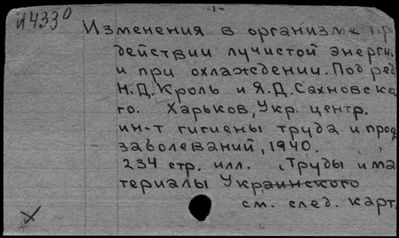 -1-
И4330
Изменения в организме при
действии лучистой энергии
и при охлаждении. Под ред.
Н.Д. Кроль и Я.Д. Сахновско-
го. Харьков, Укр. центр.
ин-т гигиены труда и проф
заболеваний, 1940.
234 стр. илл. (Труды и ма
териалы Украинского
см. след. карт.